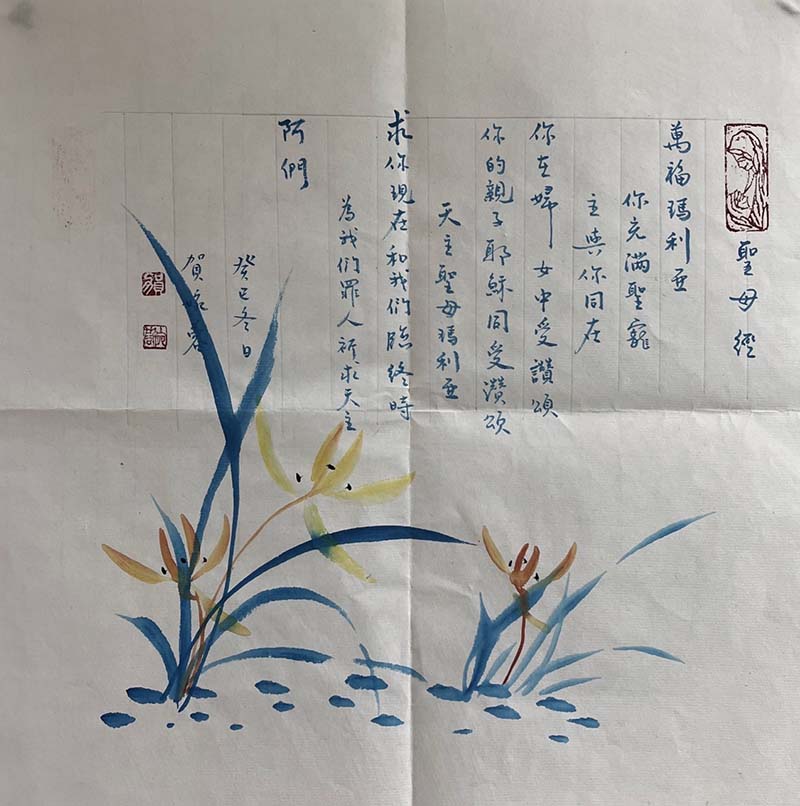 聖母經
萬福瑪利亞
你充滿聖寵
主與你同在
你在婦女中受讚頌
你的親子耶穌同受讚頌
天主聖母瑪利亞
求你現在和我們臨終時
為我們罪人祈求天主
阿們
癸巳冬日
賀